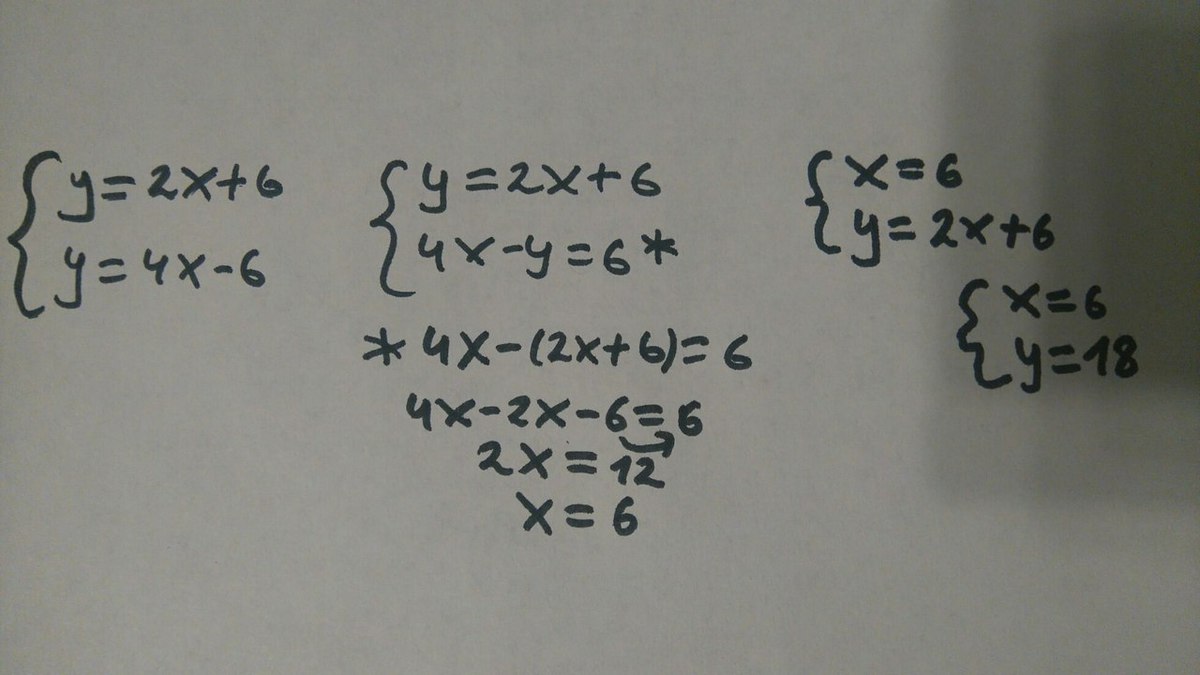 y=2x+6
y=4x-6
y=2x+6
4x-y=6*
* 4x-(2x+6)=6
4x-2x-6=6
2x=12
x=6
x=6
y=2x+6
x=6
y=18